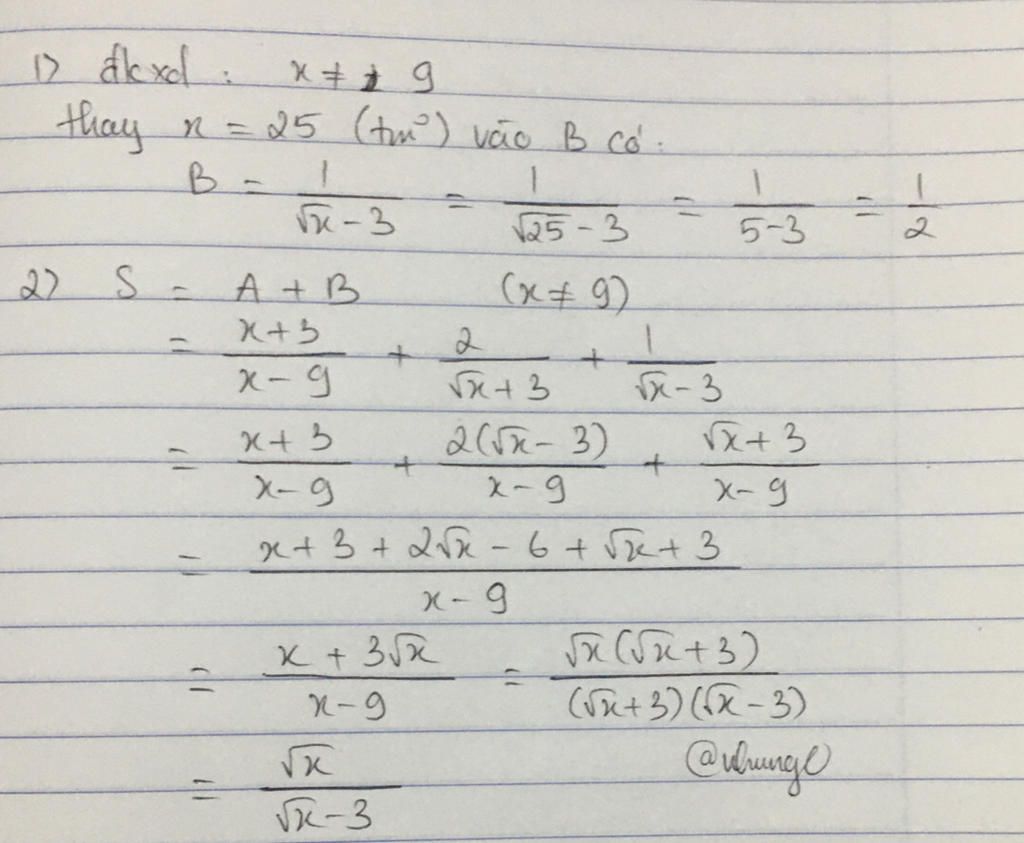 1) đkxđ : x ≠ 9
thay x = 25 (tm) vào B có:
B = 1/(√x - 3) = 1/(√25 - 3) = 1/(5-3) = 1/2
2) S = A + B (x ≠ 9)
= (x+3)/(x-9) + 2/(√x+3) + 1/(√x-3)
= (x+3)/(x-9) + 2(√x-3)/(x-9) + (√x+3)/(x-9)
= (x+3+2√x-6+√x+3)/(x-9)
= (x+3√x)/(x-9) = √x(√x+3)/((√x+3)(√x-3))
= √x/(√x-3)